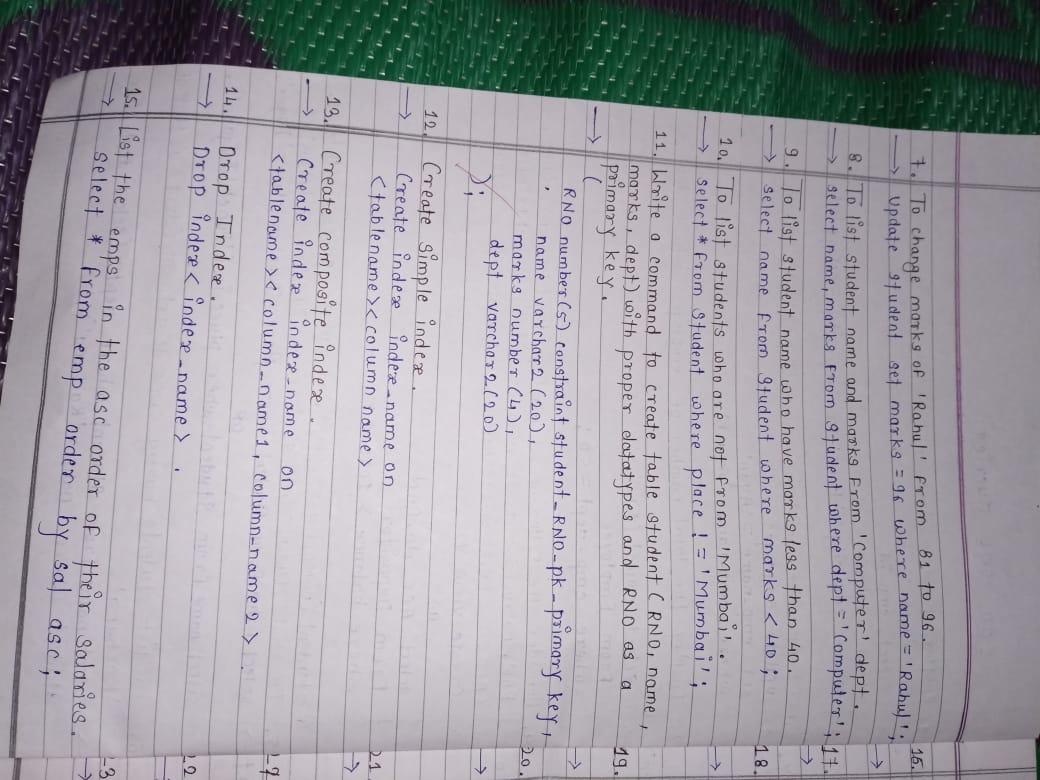 7. To change marks of 'Rahul' from 81 to 96.
→ Update student set marks = 96 where name = 'Rahul';
8. To list student name and marks from 'Computer' dept.
→ select name, marks from student where dept = 'Computer';
9. To list student name who have marks less than 40.
→ select name from student where marks < 40;
10. To list students who are not from 'Mumbai'.
→ select * from student where place != 'Mumbai';
11. Write a command to create table student (RNO, name,
marks, dept) with proper datatypes and RNO as a
primary key.
→ (
RNO number(5) constraint student_RNO_pk_primary key,
, name varchar2(20),
marks number(4),
dept varchar2(20)
);
12. Create simple index.
→ Create index index_name on
<tablename><column name>
13. Create composite index.
→ Create index index_name on
<tablename><column_name1, column_name2>
14. Drop Index.
→ Drop index <index_name>.
15. List the emps in the asc order of their salaries.
→ select * from emp order by sal asc;
16.
→
17.
→
18.
→
19.
→
20.
→
21
→
22
23
→